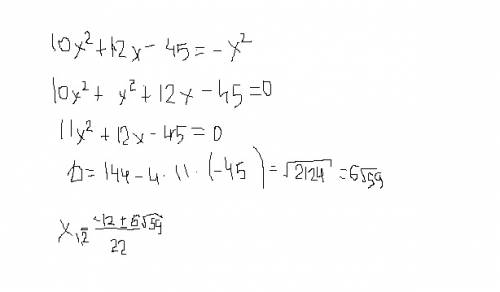 10x² + 12x - 45 = -x²
10x² + x² + 12x - 45 = 0
11x² + 12x - 45 = 0
D = 144 - 4 · 11 · (-45) = √2124 = 6√59
x₁,₂ = (-12 ± 6√59) / 22